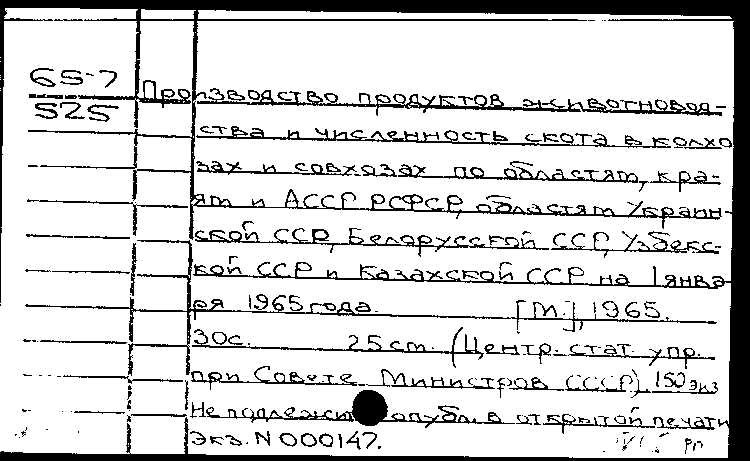 65-7
525
Производство продуктов животновод-
ства и численность скота в колхо
зах и совхозах по областям, кра-
ям и АССР РСФСР, областям Украин-
ской ССР, Белорусской ССР, Узбекс-
кой ССР и Казахской ССР на 1 янва-
ря 1965 года. [М.], 1965.
30с. 25 см. (Центр. стат. упр.
при Совете Министров СССР). 150 экз
Не подлежит опубл. в открытой печати
Экз. N 000147.